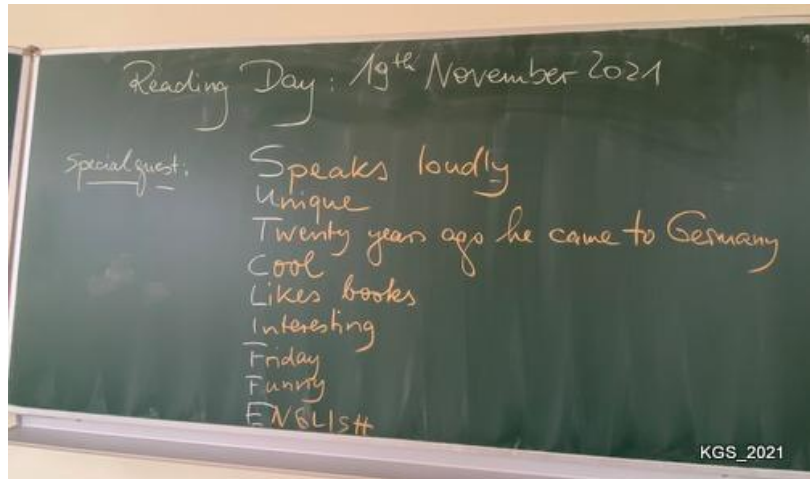 Reading Day: 19th November 2021
Special guest:
Speaks loudly
Unique
Twenty years ago he came to Germany
Cool
Likes books
Interesting
Friday
Funny
ENGLISH
KGS_2021